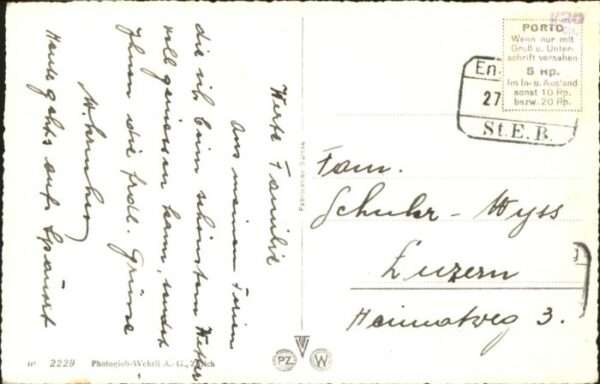 Werte Familie
Aus meinen Ferien
die ich beim schönsten Wetter
voll geniessen kann, sendet
Ihnen die frdl. Grüsse
Heute gehts aufs
PORTO
Wenn nur mit
Gruß u. Unter-
schrift versehen
5 Rp.
Im In- u. Ausland
sonst 10 Rp.
bezw. 20 Rp.
En
27
St.E.B.
Fam.
Schuhr-Wyss
Luzern
Heimatweg 3.
2229 Photogleb-Wehrli A.-G., Zürich
PZ W